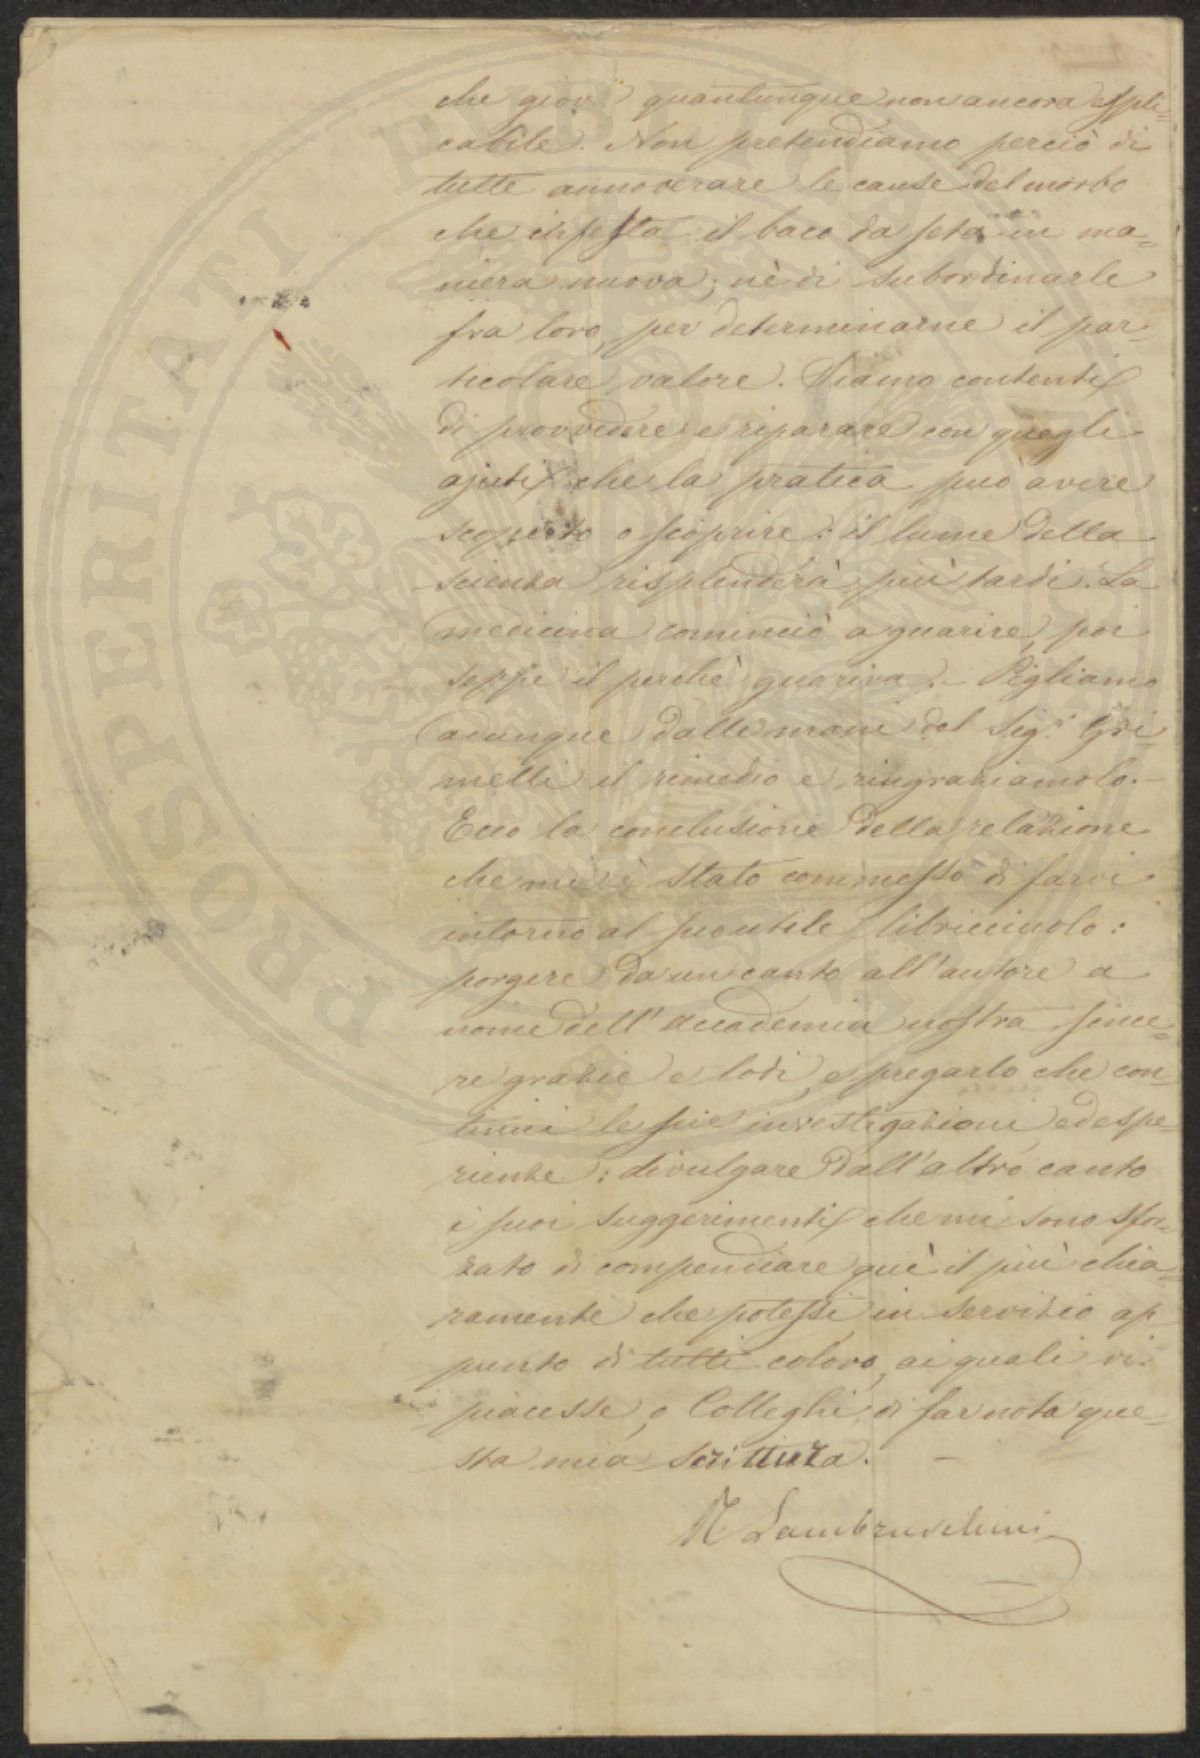 che giovi quantunque non ancora espli-
cabile. Non pretendiamo perciò di
tutte annoverare le cause del morbo
che infesta il baco da seta in ma=
niera nuova; nè di subordinarle
fra loro, per determinarne il par-
ticolare valore. Siamo contenti
di provvedere e riparare con quegli
ajuti che la pratica può avere
scoperto o scoprire: il lume della
scienza risplenderà più tardi. La
medicina cominciò a guarire, poi
seppe il perchè guariva. - Pigliamo
adunque dalle mani del Sig.r Gri=
melli il rimedio e ringraziamolo. -
Ecco la conclusione della relazione
che mi è stato commesso di farvi
intorno al suo utile libriccinolo:
porgere da un canto all'autore a
nome dell'Accademia nostra since=
re grazie e lodi, e pregarlo che con=
tinui le sue investigazioni ed espe=
rienze: divulgare dall'altro canto
i suoi suggerimenti che mi sono sfor=
zato di compendiare quì il più chia=
ramente che potessi in servizio ap
punto di tutti coloro, ai quali vi
piacesse, o Colleghi, di far nota que=
sta mia scrittura. -
R Lambruschini
PROSPERITATI PUBLICAE